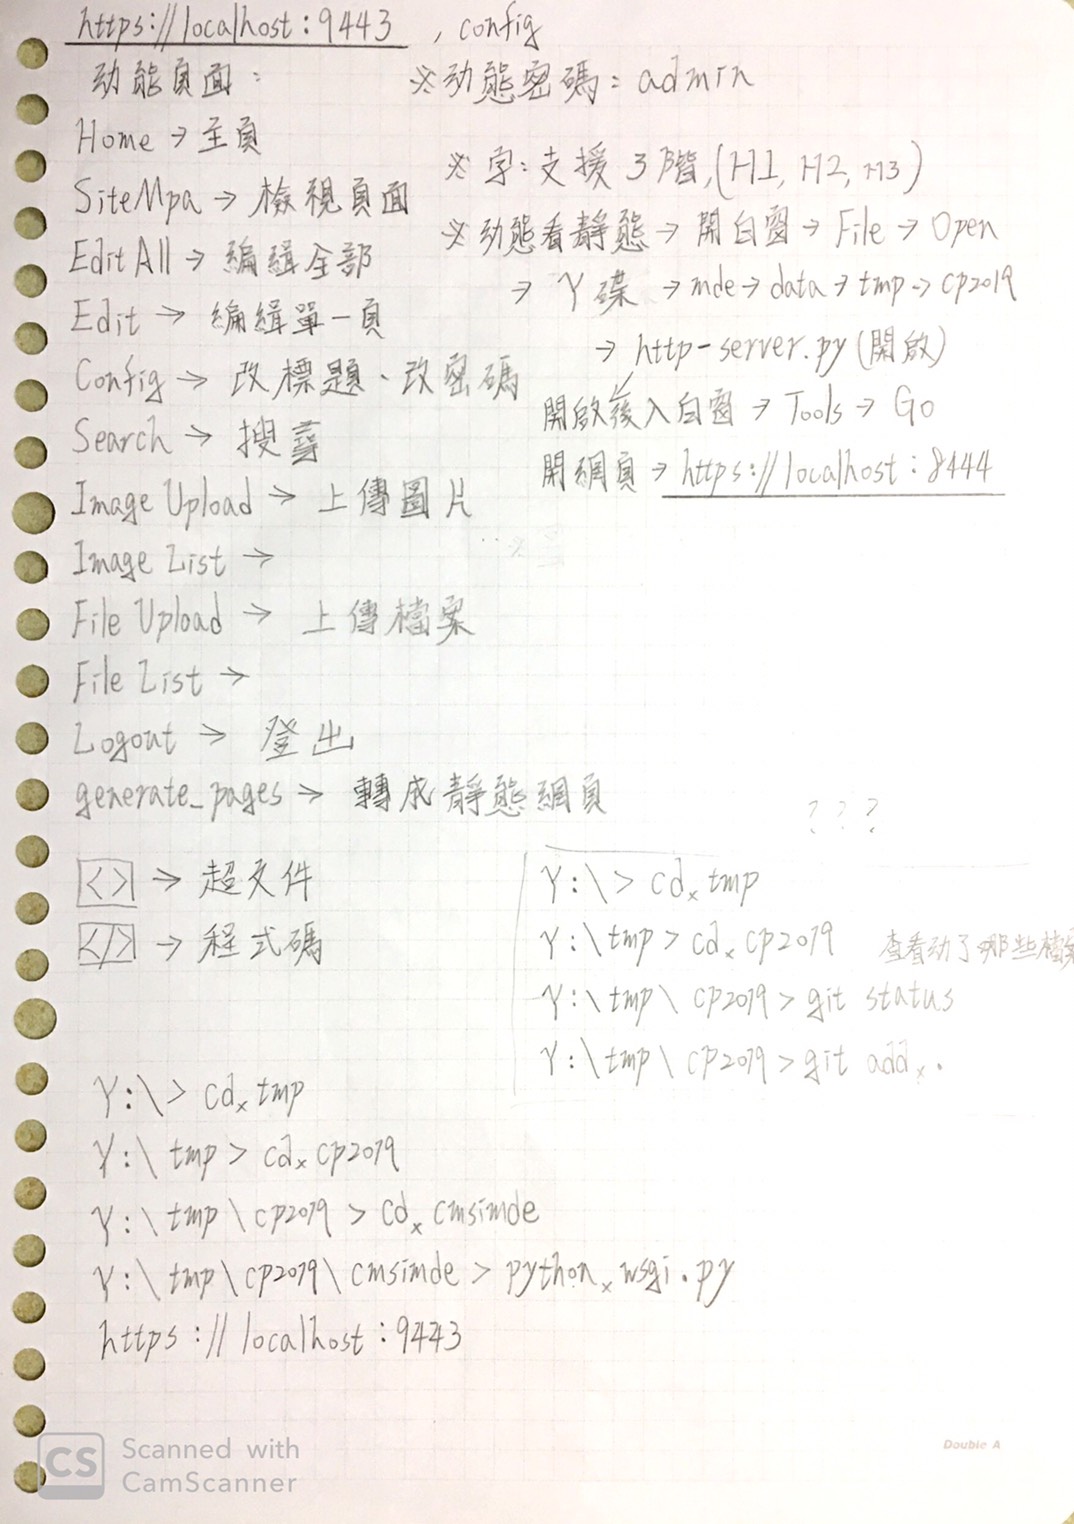 https://localhost:9443 , config
动態頁面:
※动態密碼:admin
Home → 主頁
SiteMpa → 檢視頁面
Edit All → 編緝全部
Edit → 編緝單一頁
Config → 改標題、改密碼
Search → 搜尋
Image Upload → 上傳圖片
Image List →
File Upload → 上傳檔案
File List →
Logout → 登出
generate_pages → 轉成靜態網頁
<> → 超文件
</> → 程式碼
※ 字:支援 3階,(H1, H2, H3)
※动態看靜態 → 開白窗 → File → Open
→ Y碟 → mde → data → tmp → cp2019
→ http-server.py (開啟)
開啟後入白窗 → Tools → Go
開網頁 → https://localhost:8444
???
Y:\> cdxtmp
Y:\tmp> cdxcp2019
查看动了哪些檔案
Y:\tmp\cp2019> git status
Y:\tmp\cp2019> git addx.
Y:\> cdxtmp
Y:\tmp> cdxcp2019
Y:\tmp\cp2019> cdxcmsimde
Y:\tmp\cp2019\cmsimde> pythonxwsgi.py
https://localhost:9443
Double A
CS Scanned with
CamScanner